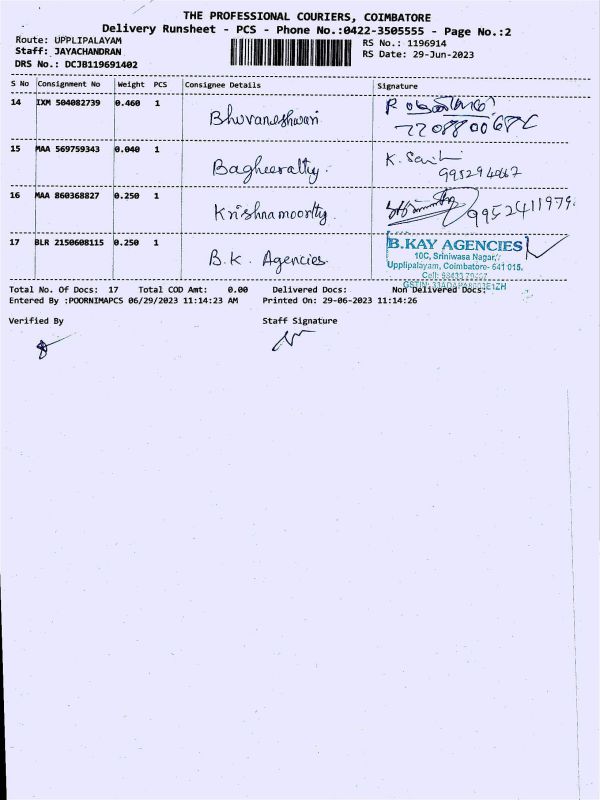 THE PROFESSIONAL COURIERS, COIMBATORE
Delivery Runsheet - PCS - Phone No.:0422-3505555 - Page No.:2
Route: UPPLIPALAYAM
RS No.: 1196914
Staff: JAYACHANDRAN
RS Date: 29-Jun-2023
DRS No.: DCJB119691402
S No Consignment No Weight PCS Consignee Details Signature
14 IXM 504082739 0.460 1 Bhuvaneshwari
15 MAA 569759343 0.040 1 Bagheerathy. K.
16 MAA 860368827 0.250 1 Krishnamoorthy. 9952411979.
17 BLR 2150608115 0.250 1 B.K. Agencies.
B.KAY AGENCIES
10C, Srinivasa Nagar,
Upplipalayam, Coimbatore- 641 015.
Cell:
GSTIN:
Total No. Of Docs: 17 Total COD Amt: 0.00 Delivered Docs: Non Delivered Docs:
Entered By :POORNIMAPCS 06/29/2023 11:14:23 AM Printed On: 29-06-2023 11:14:26
Verified By Staff Signature